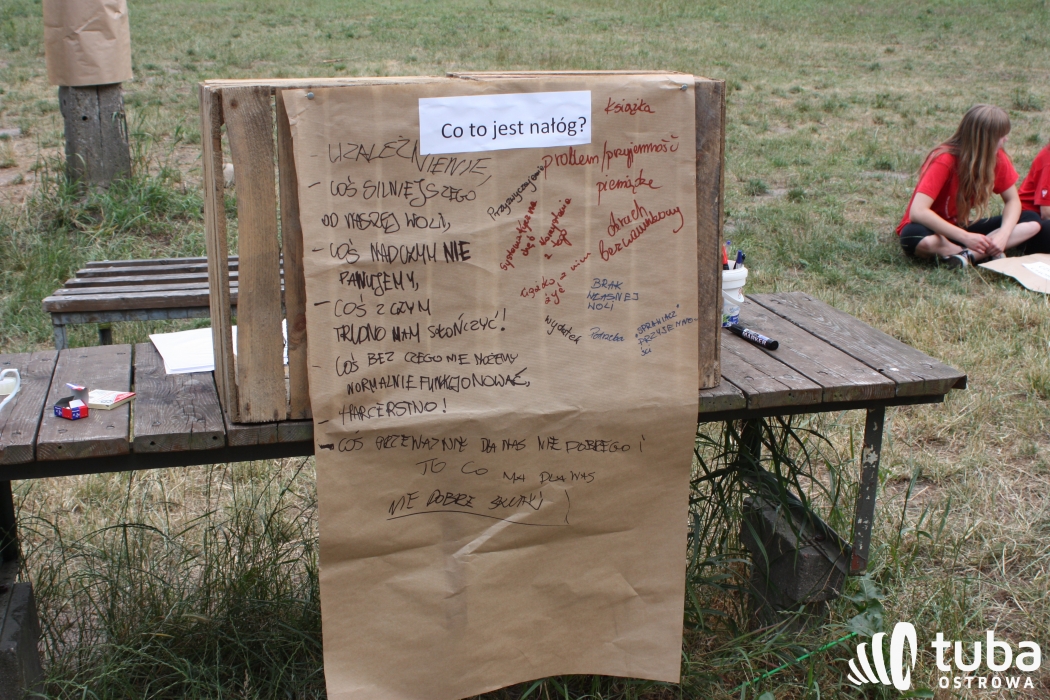 Co to jest nałóg?
- UZALEŻNIENIE,
- COŚ SILNIEJSZEGO
OD NASZEJ WOLI,
- COŚ NAD CZYM NIE
PANUJEMY,
- COŚ Z CZYM
TRUDNO NAM SKOŃCZYĆ!
- COŚ BEZ CZEGO NIE MOŻEMY
NORMALNIE FUNKCJONOWAĆ,
- HARCERSTWO!
- COŚ PRZEWAŻNIE DLA NAS NIE DOBREGO i
TO CO MA DLA WAS
NIE DOBRE SKUTKI
książka
problem/przyjemność
pieniądze
strach
bezwarunkowy
Przyzwyczajenie
systematyczne
korzystanie
z tego
ciężko z nim
żyć
BRAK
WŁASNEJ
WOLI
wydatek
Potrzeba
MARKER
tuba
OSTROWA